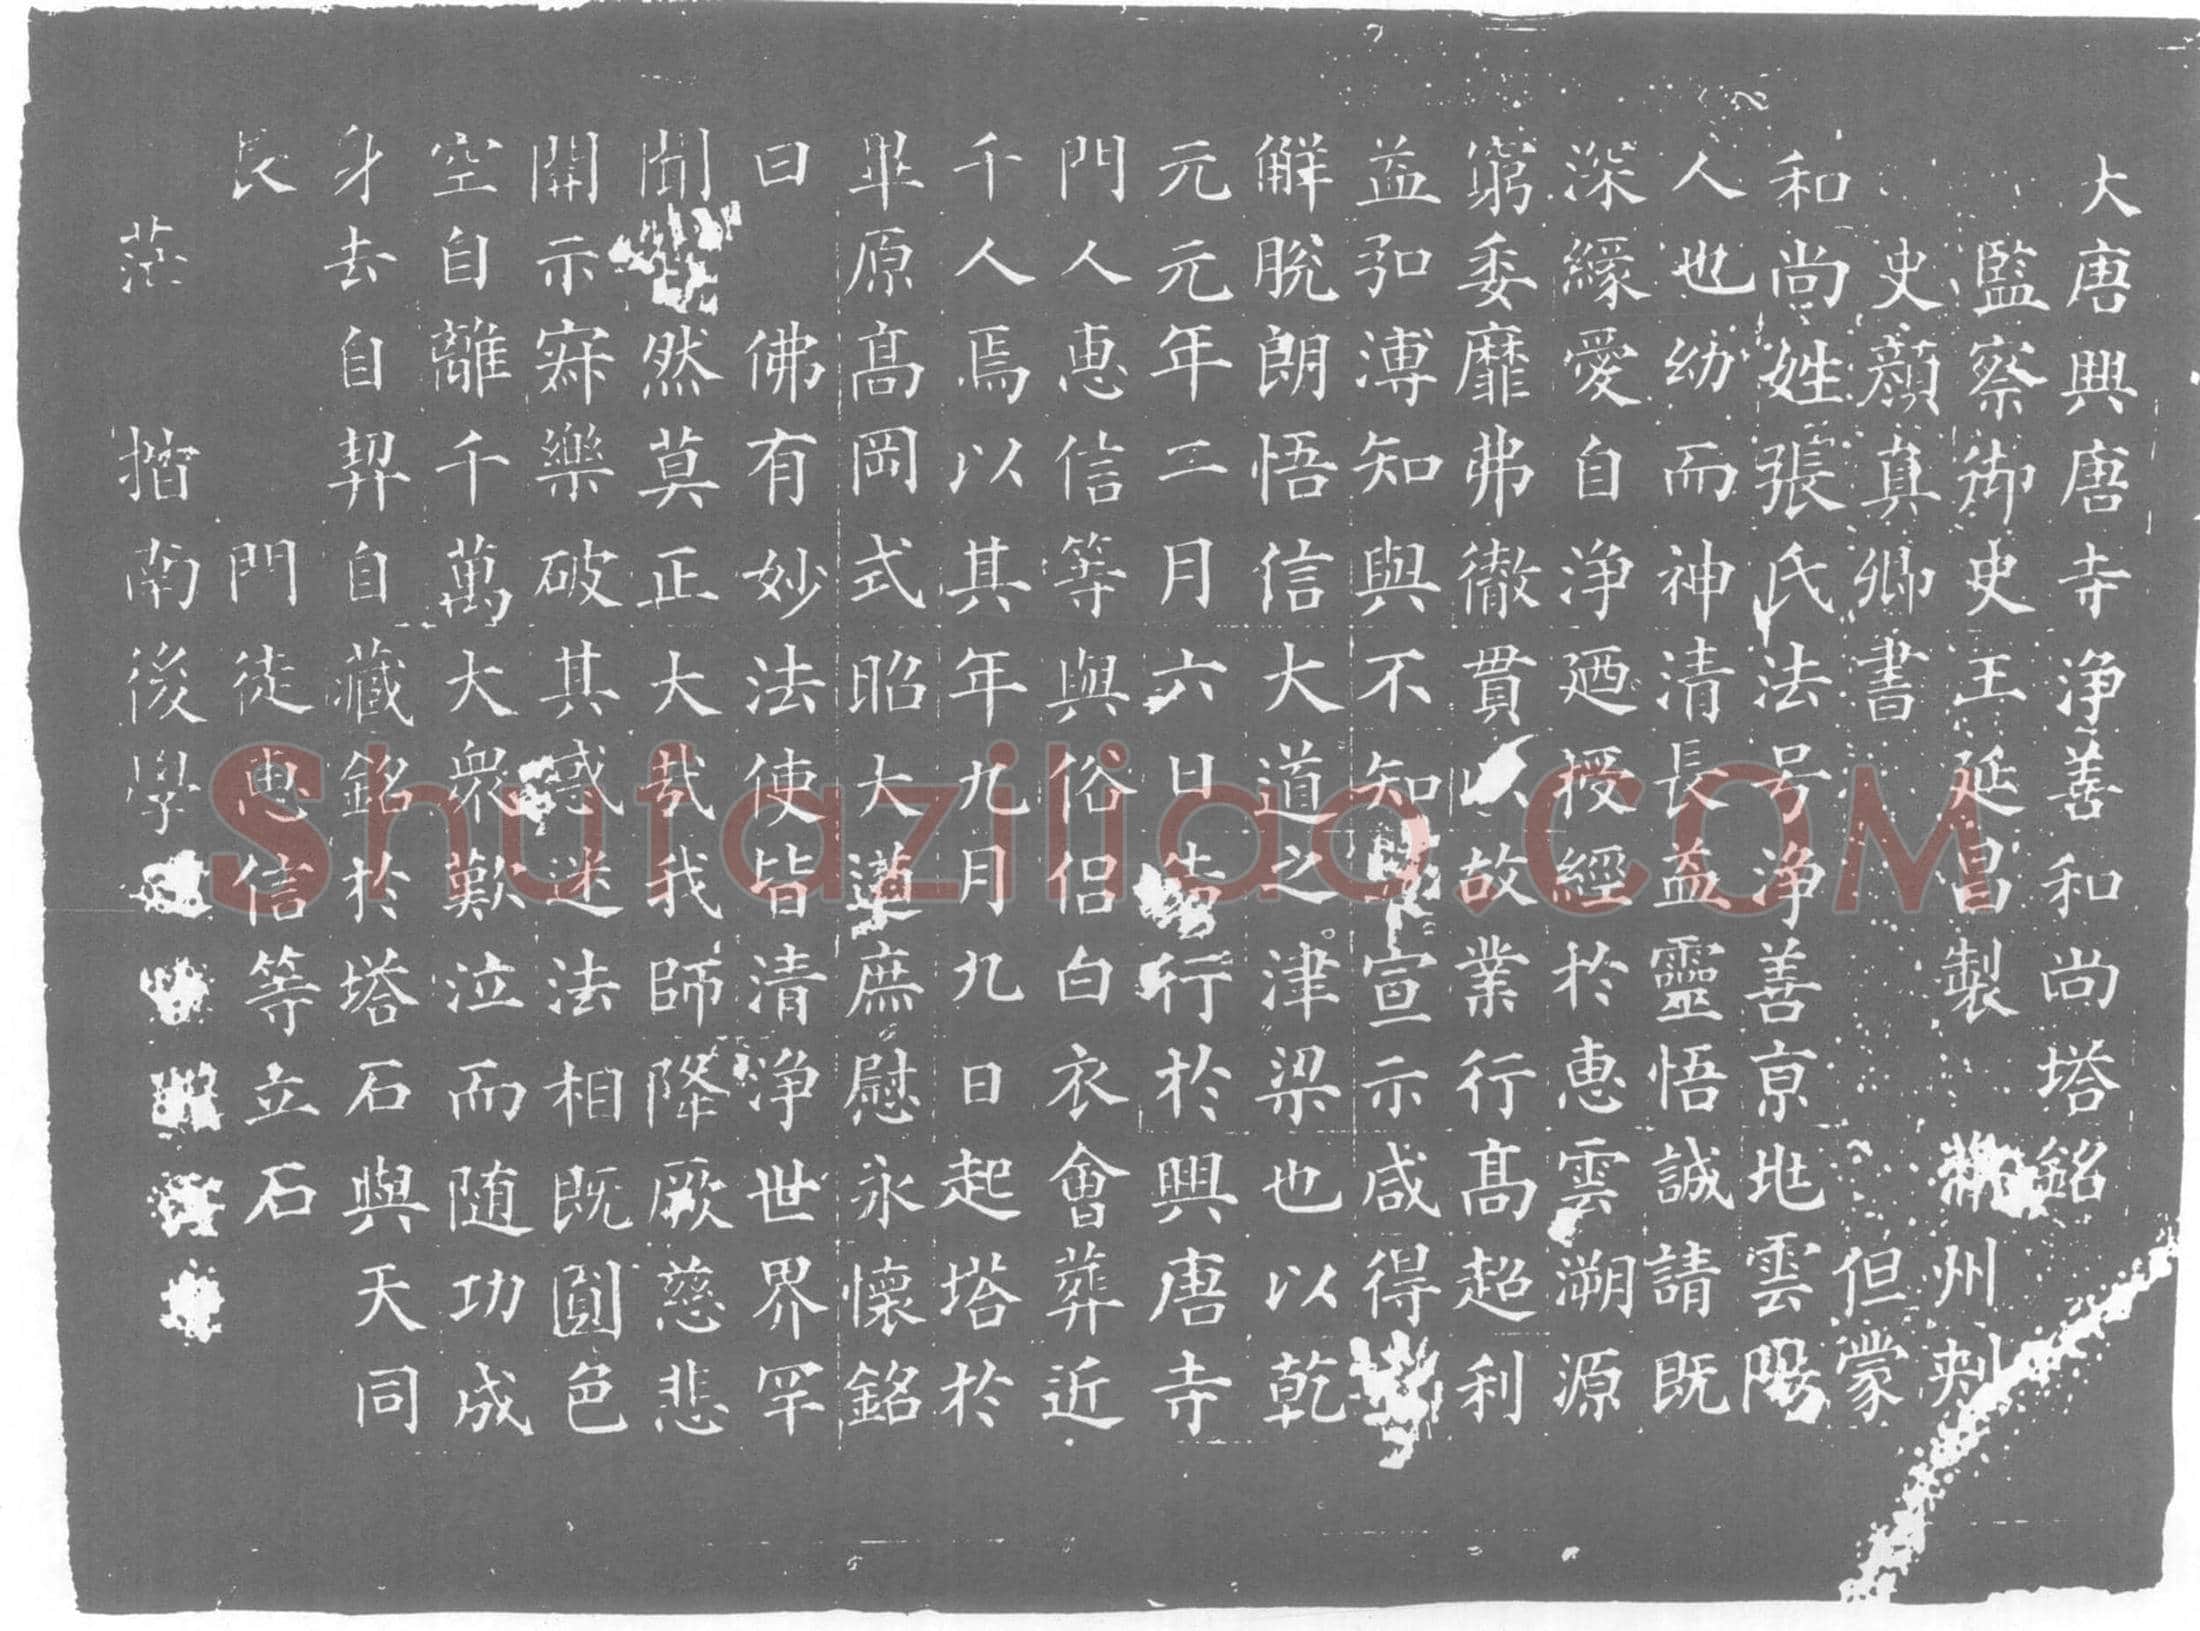 大唐興唐寺淨善和尚塔銘
監察御史王延昌製 州刺
史顏真卿書 但蒙
和尚姓張氏法号淨善京地雲陽
人也幼而神清長益靈悟誠請既
深緣愛自淨迺授經於惠雲溯源
窮委靡弗徹貫以故業行高超利
益弘溥知與不知 宣示咸得
解脫朗悟信大道之津梁也以乾
元元年二月六日 行於興唐寺
門人惠信等與俗侶白衣會葬近
千人焉以其年九月九日起塔於
畢原高岡式昭大 庶慰永懷銘
曰 佛有妙法使皆清淨世界罕
聞 然莫正大哉我師降厥慈悲
開示寂樂破其惑迷法相既圓色
空自離千萬大衆歎泣而随功成
身去自契自藏銘於塔石與天同
長 門徒惠信等立石
茫 指南後學
Shufaziliao.COM